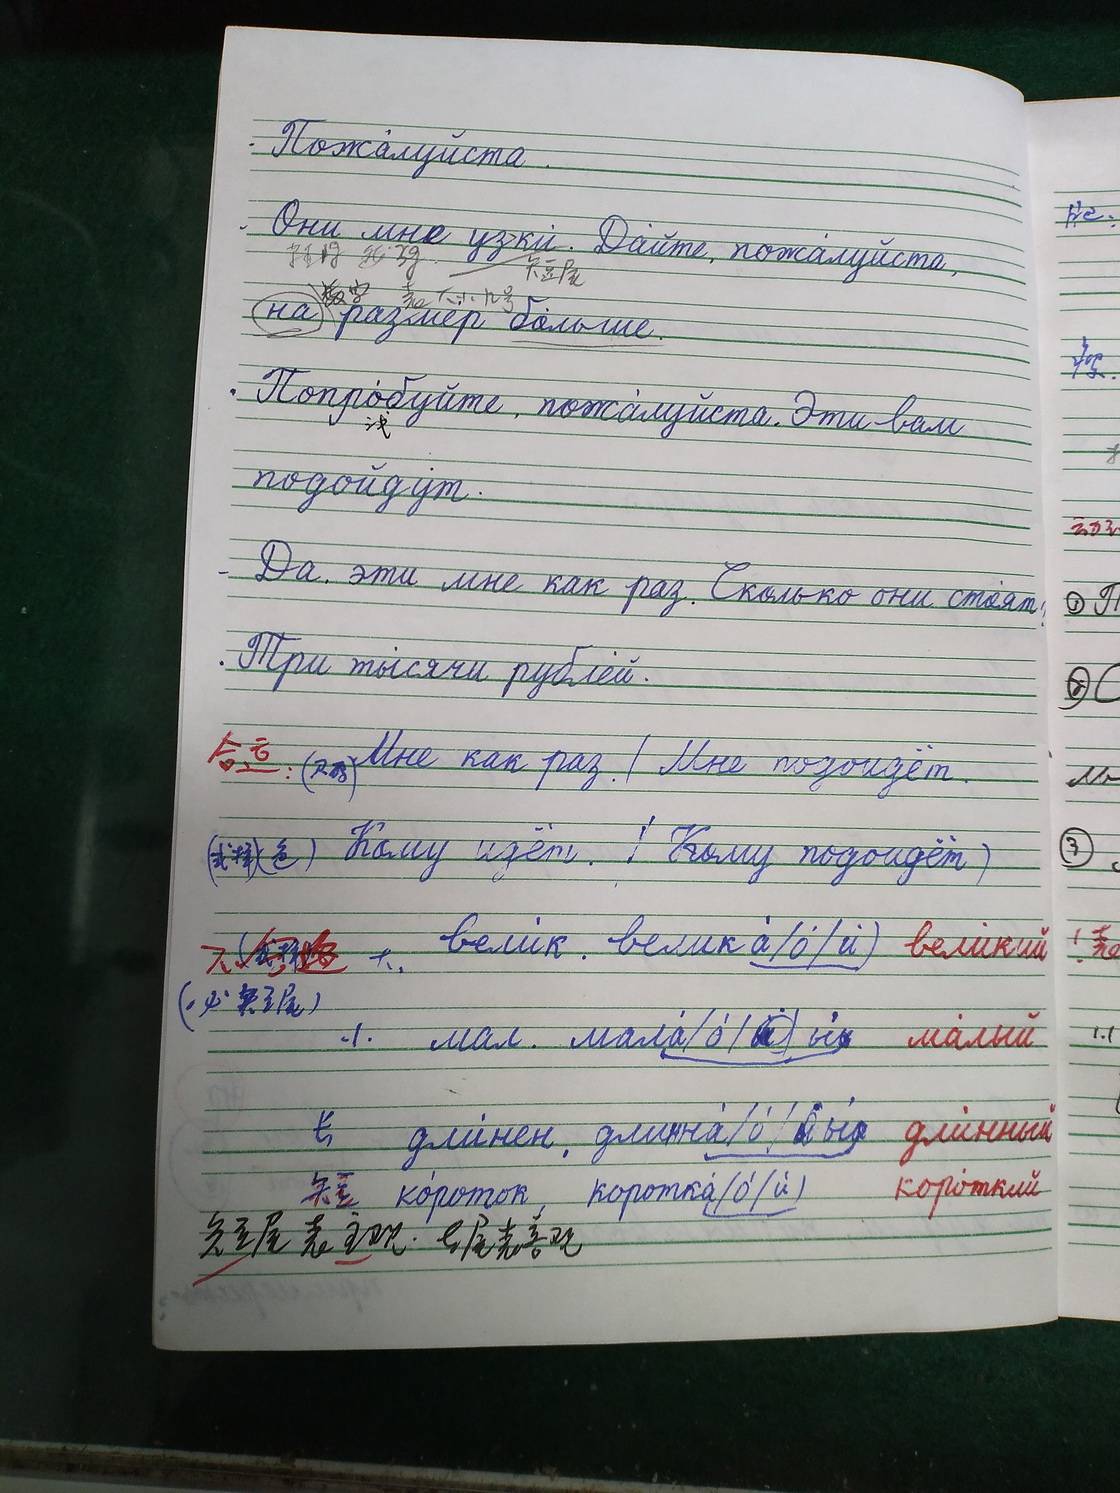 - Пожа́луйста.
- Они мне узки́. Да́йте, пожа́луйста,
短尾
数字 表大小几号
на разме́р бо́льше.
- Попро́буйте, пожа́луйста. Эти вам
试
подойду́т.
- Да. эти мне как раз. Сколько они сто́ят?
- Три ты́сячи рубле́й.
合适: Мне как раз. / Мне подойдёт.
(色) Кому идёт. / Кому подойдёт)
不合适 大. вели́к. велик а́/о́/и́) вели́кий
(必短尾)
小. мал. мала́/о́/ы́ ма́лый
长 дли́нен, длинна́/о́/ы́ дли́нный
短 ко́роток, коротка́/о́/и́) коро́ткий
短尾表主观. 长尾表客观
①
②
③